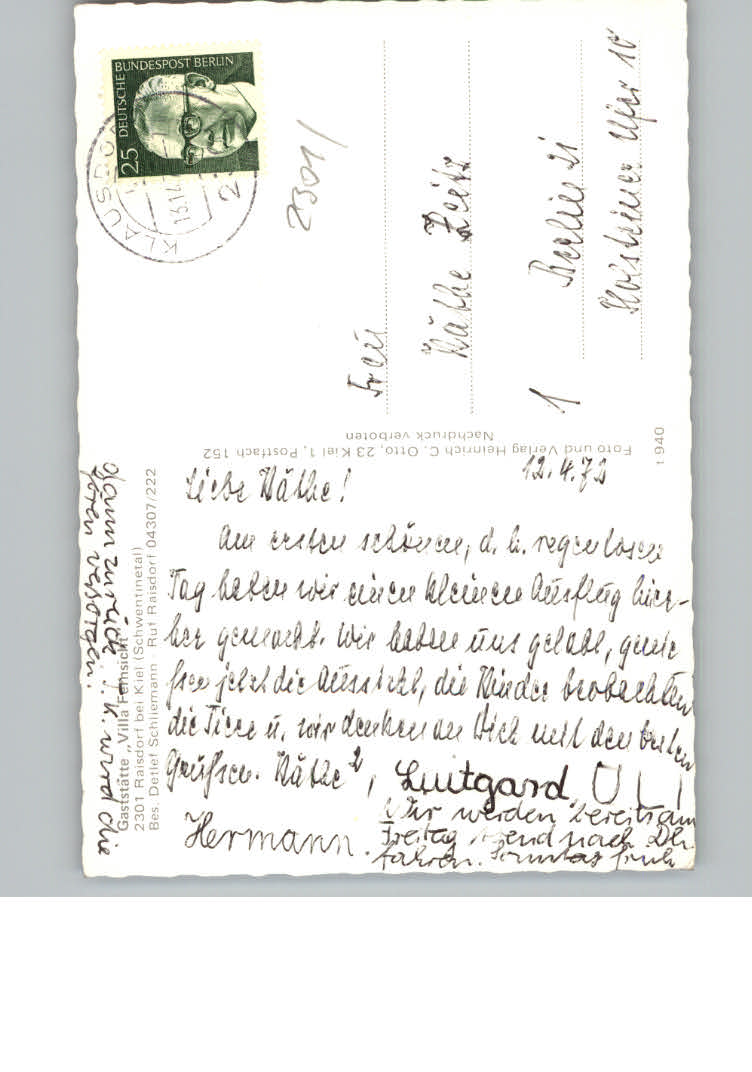 DEUTSCHE BUNDESPOST BERLIN
25
KLAUSDOR
13.
23
2301/
Frau
Käthe
Berlin 21
Holsteiner Ufer 10
1
Foto und Verlag Heinrich C. Otto, 23 Kiel 1, Postfach 152
Nachdruck verboten
t 940
Gaststätte „Villa Fernsicht"
2301 Raisdorf bei Kiel (Schwentinetal)
Bes. Detlef Schliemann · Ruf Raisdorf 04307/222
12.4.72
Liebe Käthe!
Am ersten schönen, d. h. regenlosen
Tag haben wir einen kleinen Ausflug hier-
her gemacht. Wir haben uns gelabt, genie
ßen jetzt die Aussicht, die Kinder beobachten
die Tiere u. wir denken an Dich mit den besten
Grüßen. Käthe², Luitgard, ULI
Hermann.
Wir werden bereits am
Freitag Abend nach
fahren. Sonntag früh
dann zurück. P. K. wird die
Gören versorgen.